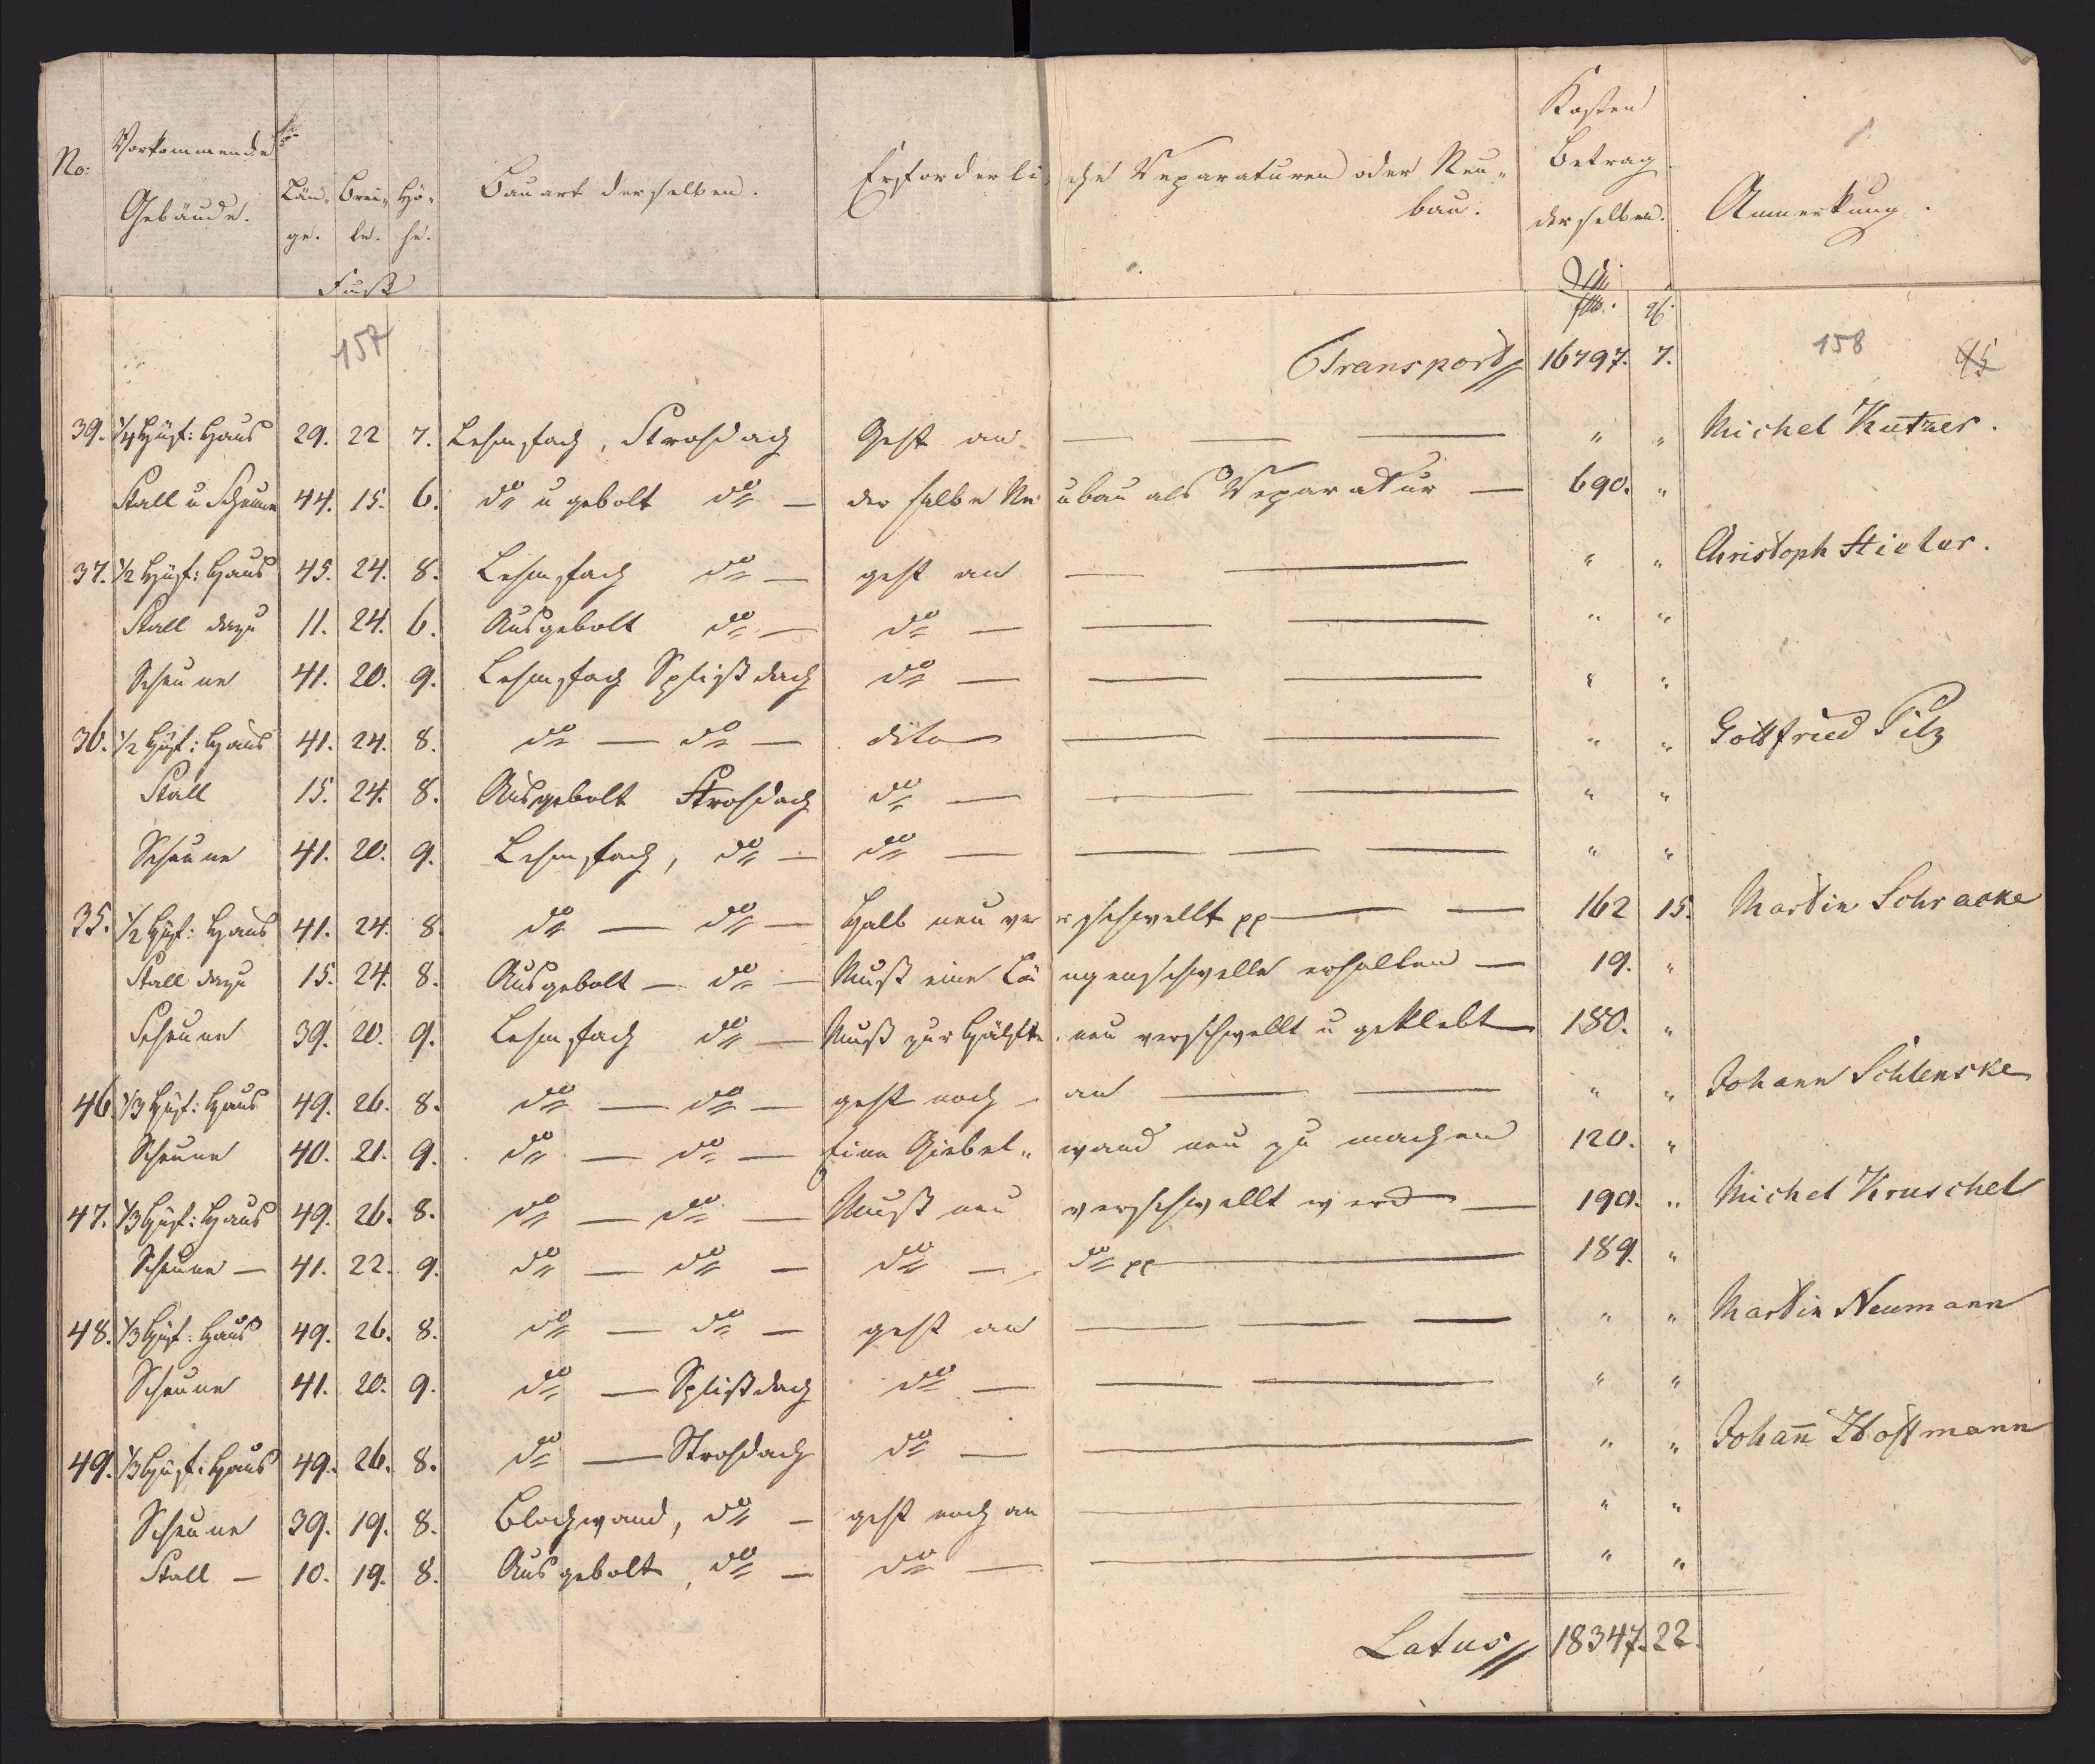 No: Vorkommende Gebäude. Län„ge. Brei„te. Hö„he. Bauart derselben. Erforderliche Reparaturen oder Neu„bau. Kosten Betrag derselben. Anmerkung.
Fuß
157 158 45
Transport 16797. 7.
39. 1/4 Hüf: Haus 29. 22 7. Lehmfach, Strohdach Geht an — — — " " Michel Kutzer.
Stall u Scheune 44. 15. 6. do u gebolt do — derselbe Neubau als Reparatur — 690. "
37. 1/2 Hüf: Haus 45. 24. 8. Lehmfach do — geht an — — " " Christoph Stieler.
Stall dazu 11. 24. 6. Ausgebolt do — do — — — " "
Scheune 41. 20. 9. Lehmfach Splißdach do — — — " "
36. 1/2 Hüf: Haus 41. 24. 8. do — do — dito — — " " Gottfried Pilz
Stall 15. 24. 8. Ausgebolt Strohdach do — — — " "
Scheune 41. 20. 9. Lehmfach, do — do — — — — " "
35. 1/2 Hüf: Haus 41. 24. 8. do — do — Halb neu verschwellt pp — — 162 15. Martin Schracke
Stall dazu 15. 24. 8. Ausgebolt — do — Muß eine Längenschwelle erhalten — 19. "
Scheune 39. 20. 9. Lehmfach do — Muß zur Hälfte neu verschwellt u geklebt — 180. "
46. 1/3 Hüf: Haus 49. 26. 8. do — do — geht noch an — — " " Johann Schlenske
Scheune 40. 21. 9. do — do — Eine Giebel„wand neu zu machen 120. "
47. 1/3 Hüf: Haus 49. 26. 8. do — do — Muß neu verschwellt werd — 190. " Michel Kruschel
Scheune — 41. 22. 9. do — do — do — do pp — 189. "
48. 1/3 Hüf: Haus 49. 26. 8. do — do — geht an — — — " " Martin Neumann
Scheune 41. 20. 9. do — Splißdach do — — — " "
49. 1/3 Hüf: Haus 49. 26. 8. do — Strohdach do — — " " Johan̄ Hoffmann
Scheune 39. 19. 8. Blochwand, do — geht noch an — " "
Stall — 10. 19. 8. Ausgebolt, do — do — — " "
Latus 18347. 22.